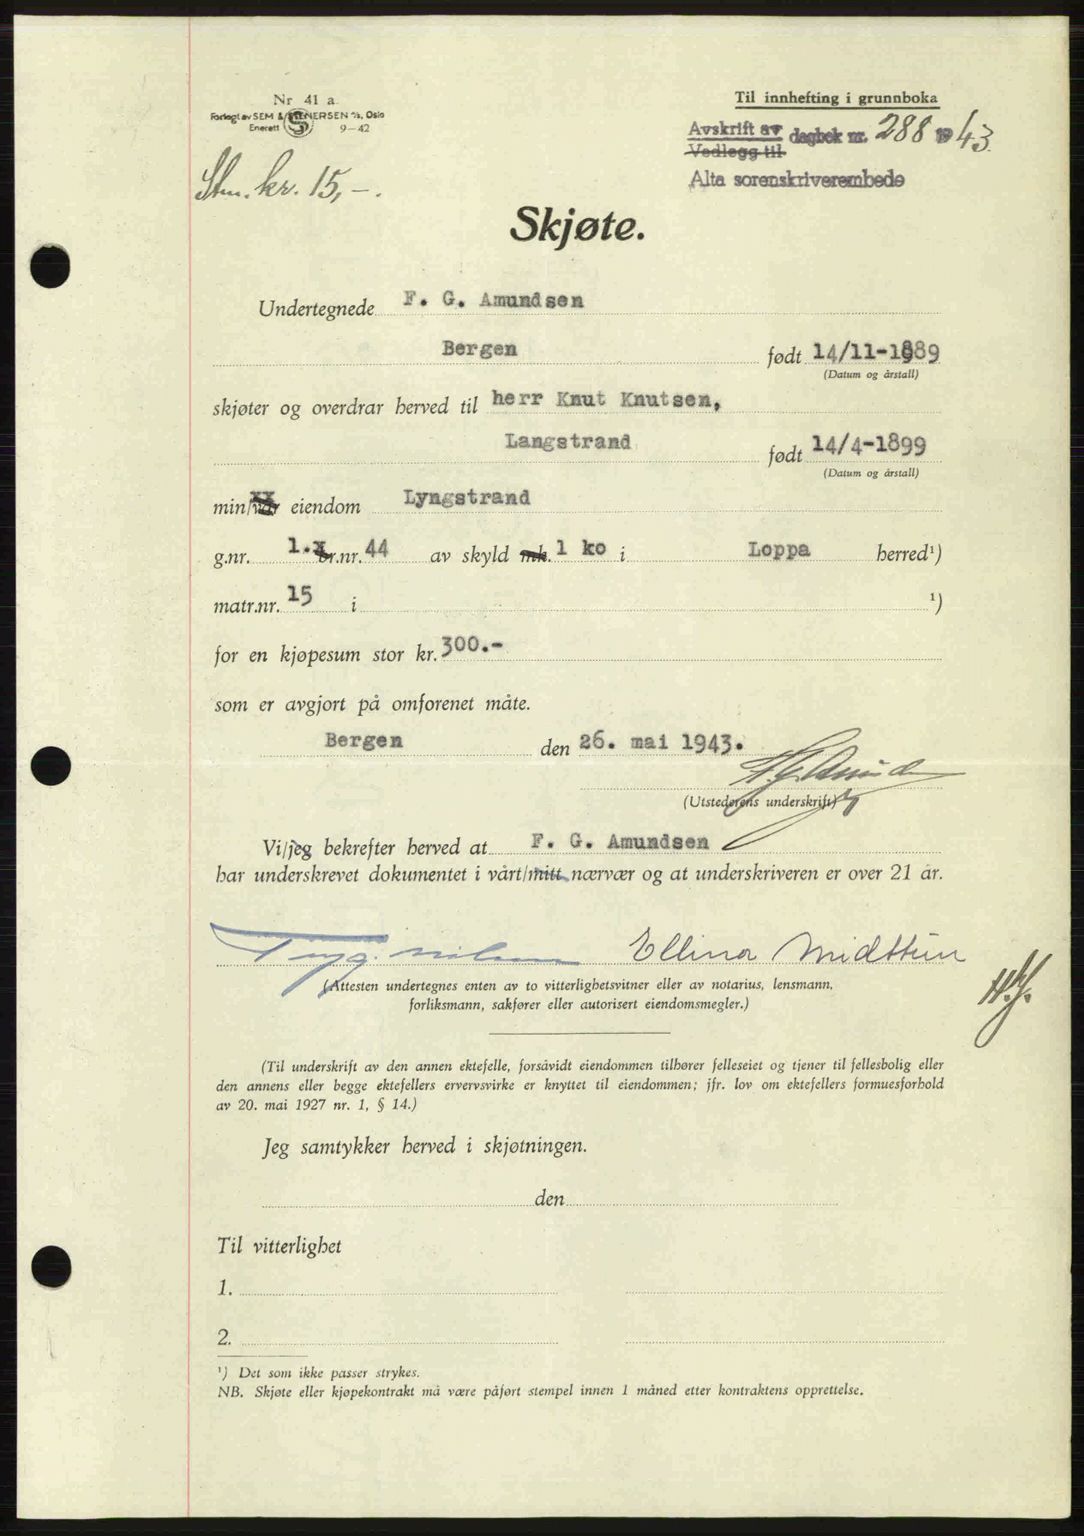 Nr 41 a
Til innhefting i grunnboka
Forlagt av SEM & STENERSEN A/S, Oslo
Enerett 9-42
Avskrift av dagbok nr. 288 1943
Vedlegg til
Alta sorenskriverembede
Stm. kr. 15,-.
Skjøte.
Undertegnede F. G. Amundsen
Bergen født 14/11-1889
(Datum og årstall)
skjøter og overdrar herved til herr Knut Knutsen,
Langstrand født 14/4-1899
(Datum og årstall)
min/vår eiendom Lyngstrand
g.nr. 1. br.nr. 44 av skyld mk. 1 ko i Loppa herred¹)
matr.nr. 15 i ¹)
for en kjøpesum stor kr. 300.-
som er avgjort på omforenet måte.
Bergen den 26. mai 1943.
(Utstederens underskrift)
Vi/jeg bekrefter herved at F. G. Amundsen
har underskrevet dokumentet i vårt/mitt nærvær og at underskriveren er over 21 år.
Tryg. Nilsen Ellina Midttun
(Attesten undertegnes enten av to vitterlighetsvitner eller av notarius, lensmann,
forliksmann, sakfører eller autorisert eiendomsmegler.)
(Til underskrift av den annen ektefelle, forsåvidt eiendommen tilhører felleseiet og tjener til fellesbolig eller
den annens eller begge ektefellers ervervsvirke er knyttet til eiendommen; jfr. lov om ektefellers formuesforhold
av 20. mai 1927 nr. 1, § 14.)
Jeg samtykker herved i skjøtningen.
den
Til vitterlighet
1.
2.
¹) Det som ikke passer strykes.
NB. Skjøte eller kjøpekontrakt må være påført stempel innen 1 måned etter kontraktens opprettelse.